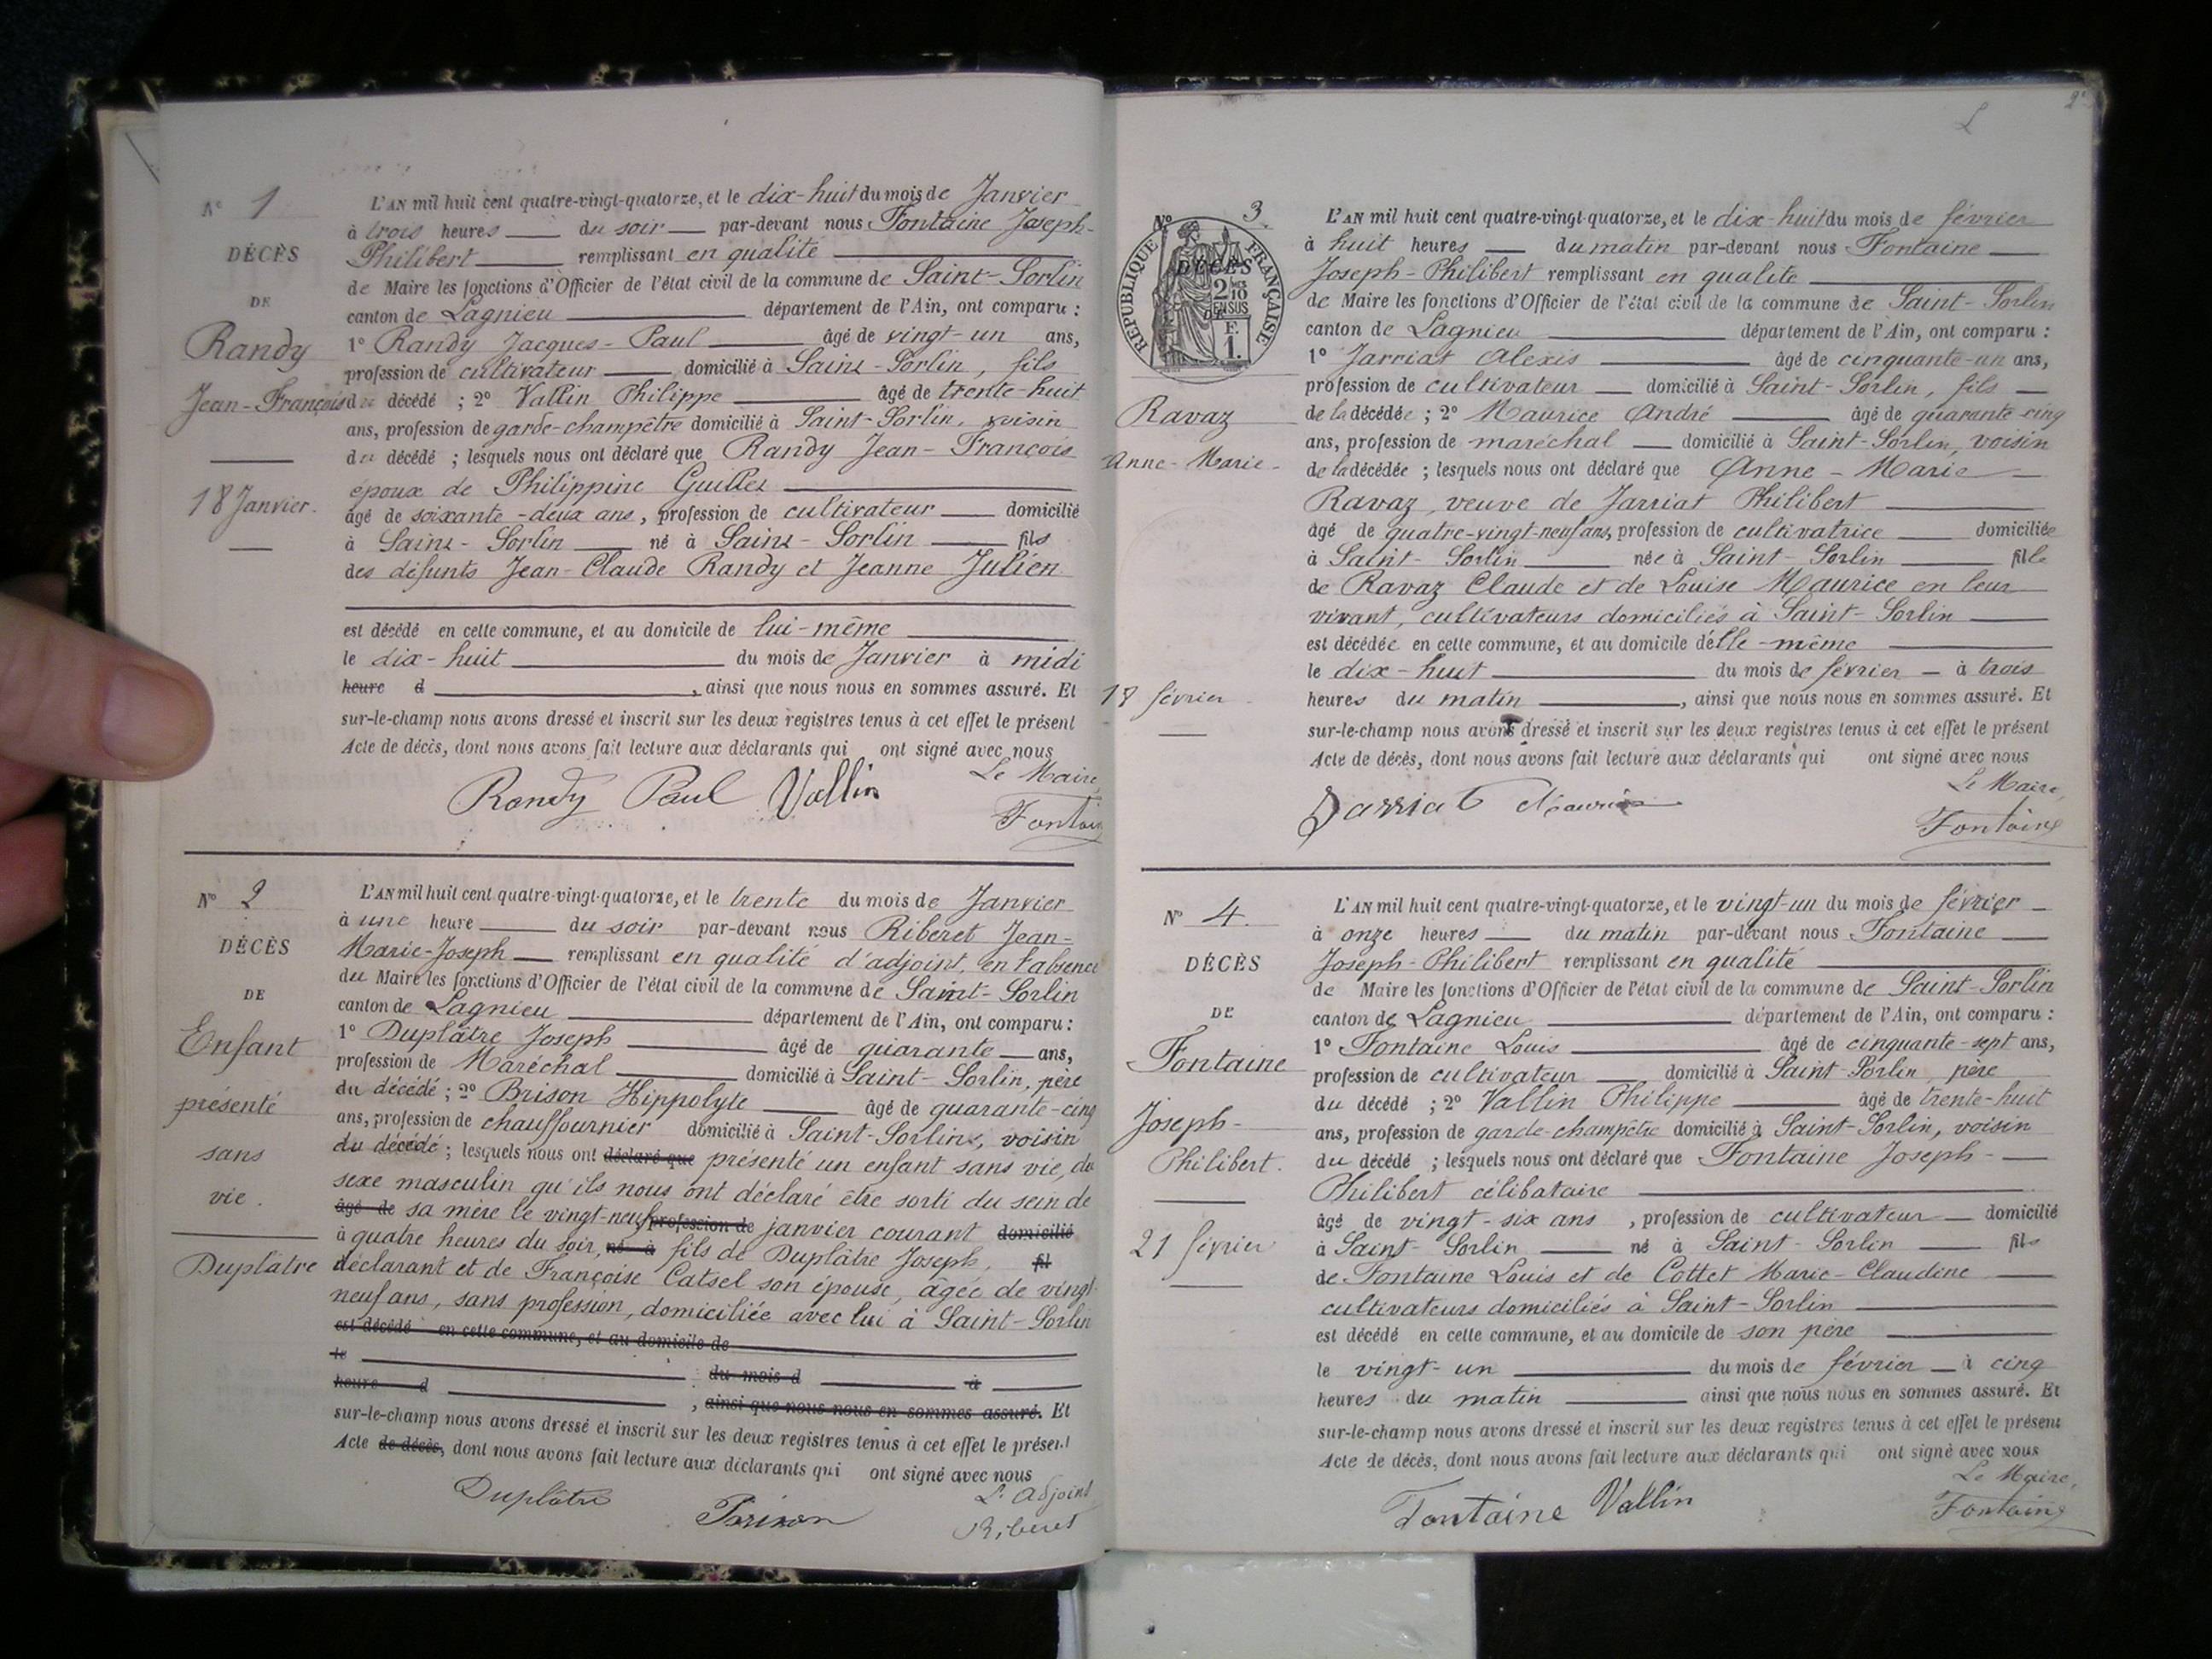 N° 1
DÉCÈS
DE
Randy
Jean-François
18 Janvier.
L'AN mil huit cent quatre-vingt-quatorze, et le dix-huit du mois de Janvier
à trois heures du soir par-devant nous Fontaine Joseph-
Philibert remplissant en qualité
de Maire les fonctions d'Officier de l'état civil de la commune de Saint-Sorlin
canton de Lagnieu département de l'Ain, ont comparu :
1° Randy Jacques-Paul âgé de vingt-un ans,
profession de cultivateur domicilié à Saint-Sorlin, fils
du décédé ; 2° Vallin Philippe âgé de trente-huit
ans, profession de garde-champêtre domicilié à Saint-Sorlin, voisin
du décédé ; lesquels nous ont déclaré que Randy Jean-François
époux de Philippine
âgé de soixante-deux ans, profession de cultivateur domicilié
à Saint-Sorlin né à Saint-Sorlin fils
des défunts Jean-Claude Randy et Jeanne Julien
est décédé en cette commune, et au domicile de lui-même
le dix-huit du mois de Janvier à midi
heure d , ainsi que nous nous en sommes assuré. Et
sur-le-champ nous avons dressé et inscrit sur les deux registres tenus à cet effet le présent
Acte de décès, dont nous avons fait lecture aux déclarants qui ont signé avec nous
Le Maire,
Randy Paul Vallin
Fontaine
N° 2
DÉCÈS
DE
Enfant
présenté
sans
vie.
Duplâtre
L'AN mil huit cent quatre-vingt-quatorze, et le trente du mois de Janvier
à une heure du soir par-devant nous Riberet Jean-
Marie-Joseph remplissant en qualité d'adjoint, en l'absence
du Maire les fonctions d'Officier de l'état civil de la commune de Saint-Sorlin
canton de Lagnieu département de l'Ain, ont comparu :
1° Duplâtre Joseph âgé de quarante ans,
profession de Maréchal domicilié à Saint-Sorlin, père
du décédé ; 2° Brison Hippolyte âgé de quarante-cinq
ans, profession de chauffournier domicilié à Saint-Sorlin, voisin
du décédé ; lesquels nous ont déclaré que présenté un enfant sans vie, du
sexe masculin qu'ils nous ont déclaré être sorti du sein de
âgé de sa mère le vingt-neuf profession de janvier courant domicilié
à quatre heures du soir, né à fils de Duplâtre Joseph, fil
déclarant et de Françoise Catsel son épouse, âgée de vingt
neuf ans, sans profession, domiciliée avec lui à Saint-Sorlin
est décédé en cette commune, et au domicile de
le
du mois d à
heure d
, ainsi que nous nous en sommes assuré. Et
sur-le-champ nous avons dressé et inscrit sur les deux registres tenus à cet effet le présent
Acte de décès, dont nous avons fait lecture aux déclarants qui ont signé avec nous
Duplâtre
L'adjoint
Riberet
2
N° 3
DÉCÈS
DE
RÉPUBLIQUE FRANÇAISE
2 10
EN SUS
F.
1.
Ravaz
Anne-Marie
18 février
L'AN mil huit cent quatre-vingt-quatorze, et le dix-huit du mois de février
à huit heures du matin par-devant nous Fontaine
Joseph-Philibert remplissant en qualité
de Maire les fonctions d'Officier de l'état civil de la commune de Saint-Sorlin
canton de Lagnieu département de l'Ain, ont comparu :
1° Jarriat Alexis âgé de cinquante-un ans,
profession de cultivateur domicilié à Saint-Sorlin, fils
de la décédée ; 2° Maurice André âgé de quarante-cinq
ans, profession de maréchal domicilié à Saint-Sorlin, voisin
de la décédée ; lesquels nous ont déclaré que Anne-Marie
Ravaz, veuve de Jarriat Philibert
âgé de quatre-vingt-neuf ans, profession de cultivatrice domiciliée
à Saint-Sorlin née à Saint-Sorlin fille
de Ravaz Claude et de Louise Maurice en leur
vivant, cultivateurs domiciliés à Saint-Sorlin
est décédée en cette commune, et au domicile d'elle-même
le dix-huit du mois de février à trois
heures du matin , ainsi que nous nous en sommes assuré. Et
sur-le-champ nous avons dressé et inscrit sur les deux registres tenus à cet effet le présent
Acte de décès, dont nous avons fait lecture aux déclarants qui ont signé avec nous
Le Maire,
Jarriat Maurice
Fontaine
N° 4.
DÉCÈS
DE
Fontaine
Joseph-
Philibert.
21 février
L'AN mil huit cent quatre-vingt-quatorze, et le vingt-un du mois de février
à onze heures du matin par-devant nous Fontaine
Joseph-Philibert remplissant en qualité
de Maire les fonctions d'Officier de l'état civil de la commune de Saint-Sorlin
canton de Lagnieu département de l'Ain, ont comparu :
1° Fontaine Louis âgé de cinquante-sept ans,
profession de cultivateur domicilié à Saint-Sorlin, père
du décédé ; 2° Vallin Philippe âgé de trente-huit
ans, profession de garde-champêtre domicilié à Saint-Sorlin, voisin
du décédé ; lesquels nous ont déclaré que Fontaine Joseph-
Philibert célibataire
âgé de vingt-six ans , profession de cultivateur domicilié
à Saint-Sorlin né à Saint-Sorlin fils
de Fontaine Louis et de Cottet Marie-Claudine
cultivateurs domiciliés à Saint-Sorlin
est décédé en cette commune, et au domicile de son père
le vingt-un du mois de février à cinq
heures du matin ainsi que nous nous en sommes assuré. Et
sur-le-champ nous avons dressé et inscrit sur les deux registres tenus à cet effet le présent
Acte de décès, dont nous avons fait lecture aux déclarants qui ont signé avec nous
Le Maire,
Fontaine Vallin
Fontaine